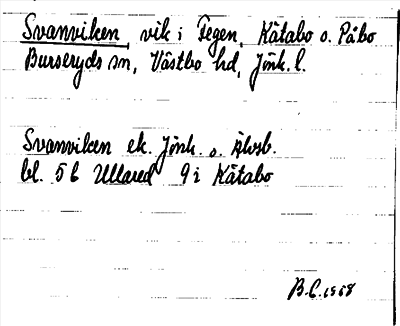 Svanviken, vik i Fegen, Kåtabo o. Påbo
Burseryds sn, Västbo hd, Jönk. l.
Svanviken ek. Jönk. o. Älvsb.
bl. 5 b Ullared 9 i Kåtabo
B.C. 1968